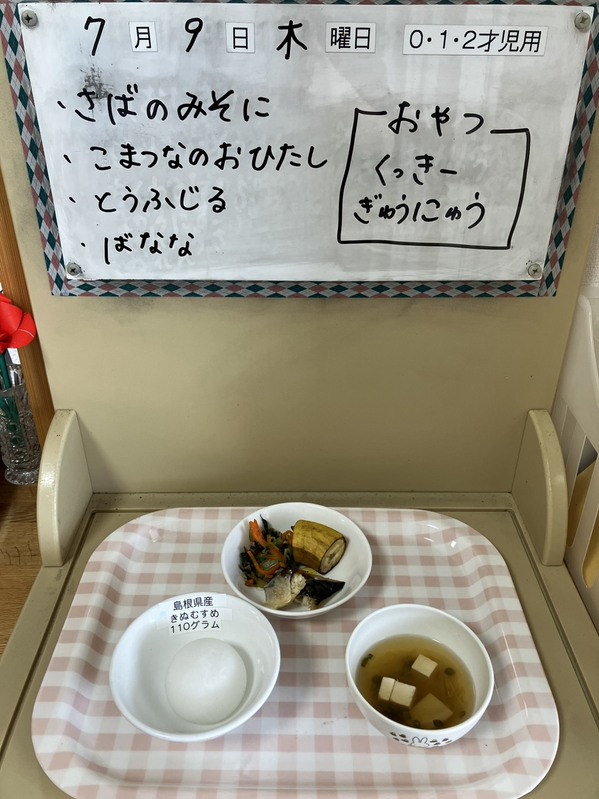 7月9日木曜日 0・1・2才児用
・さばのみそに
・こまつなのおひたし
・とうふじる
・ばなな
おやつ
くっきー
ぎゅうにゅう
島根県産
きぬむすめ
110グラム